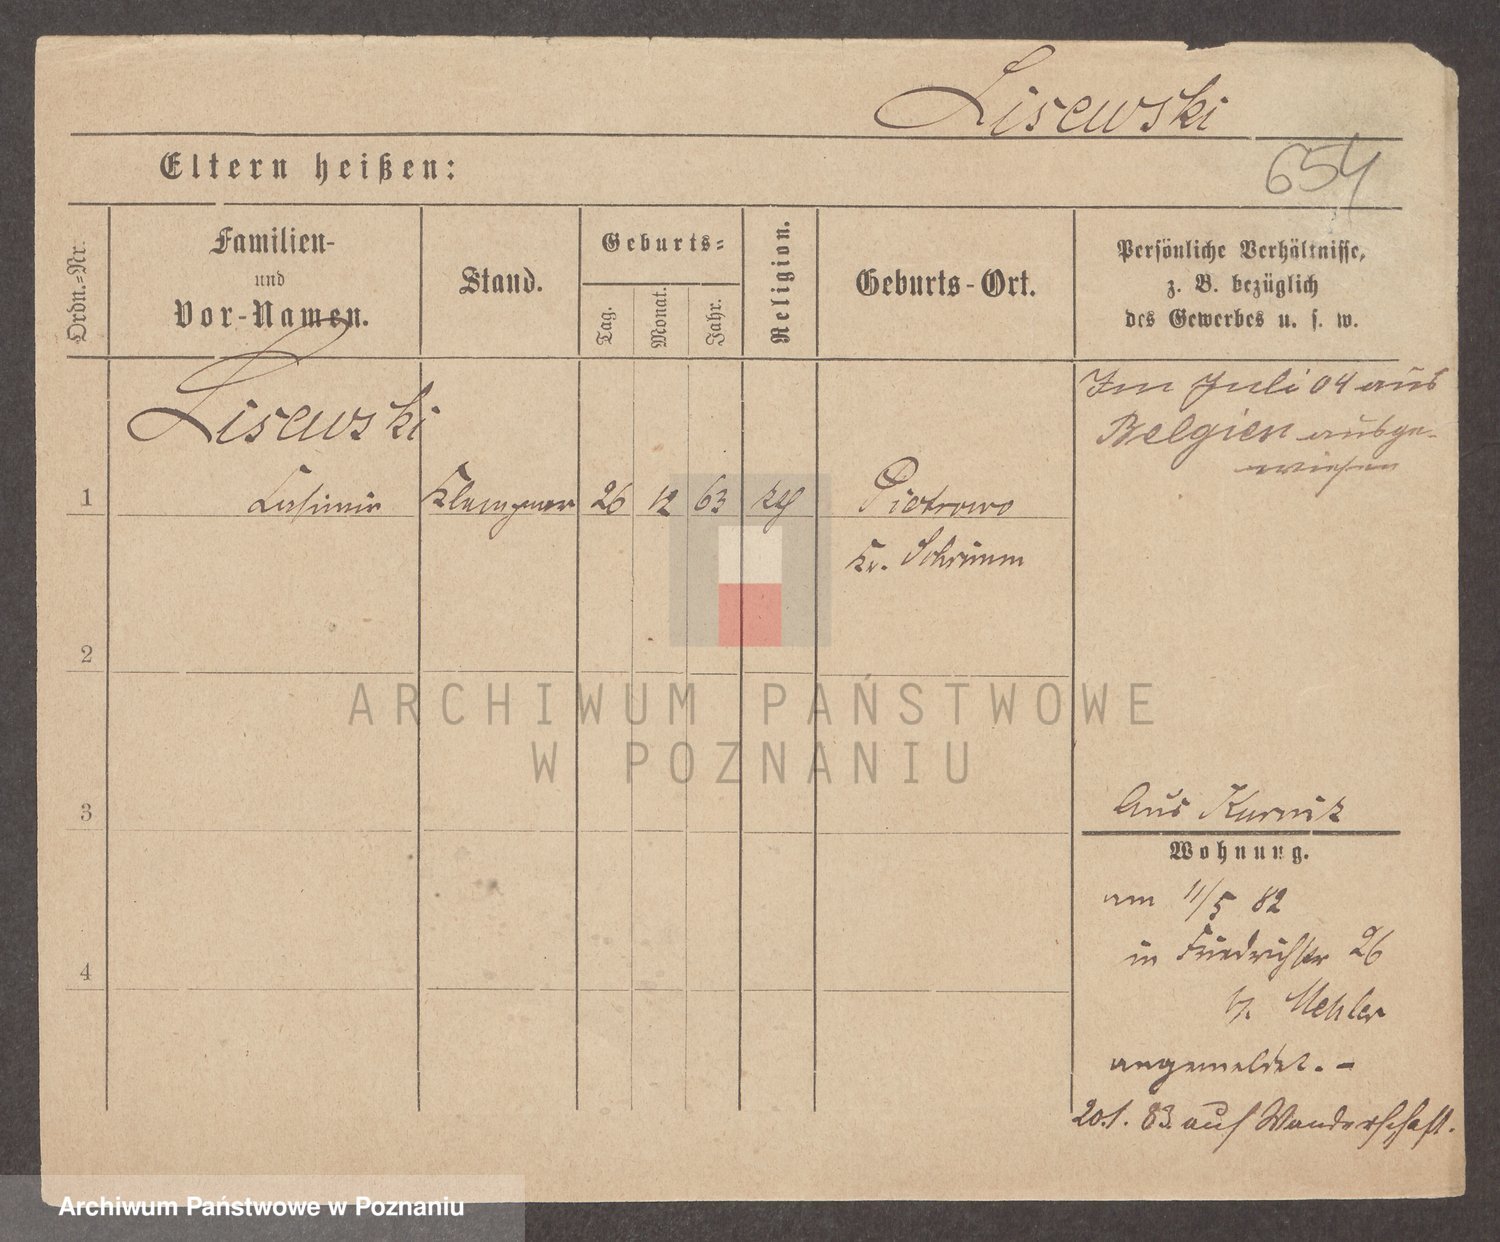 Lisewski
Eltern heißen:
654
Ordn.=Nr.
Familien-
und
Vor-Namen.
Stand.
Geburts=
Tag.
Monat.
Jahr.
Religion.
Geburts-Ort.
Persönliche Verhältnisse,
z. B. bezüglich
des Gewerbes u. s. w.
Im Juli 04 aus
Belgien ausge-
wiesen
Lisewski
1 Casimir Klempner 26 12 63 Piotrowo
Kr. Schrimm
2
ARCHIWUM PAŃSTWOWE
W POZNANIU
3
Aus Kurnik
Wohnung.
am 11/5 82
in Friedrichstr 26
b/. Mehler
4
angemeldet. -
20.1. 83. auf Wanderschaft.
Archiwum Państwowe w Poznaniu